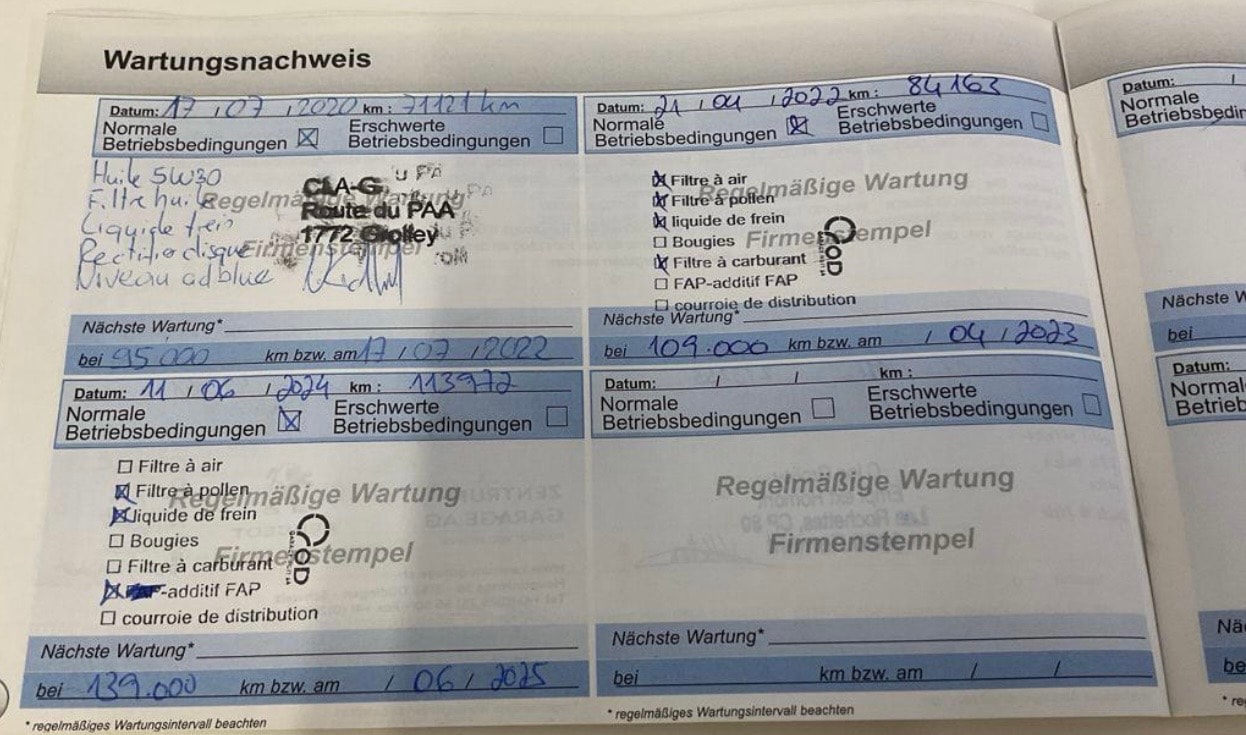 Wartungsnachweis
Datum: 17 / 07 / 2020 km : 71121 km
Normale Betriebsbedingungen ☒ Erschwerte Betriebsbedingungen ☐
Huile 5W30
Filtre huile
Liquide frein
Rectif disque
Niveau adblue
Regelmäßige Wartung
Firmenstempel
Route du PAA
1772 Grolley
Nächste Wartung*
bei 95000 km bzw. am 17 / 07 / 2022
Datum: 21 / 04 / 2022 km : 84163
Normale Betriebsbedingungen ☒ Erschwerte Betriebsbedingungen ☐
☒ Filtre à air
☒ Filtre à pollen
☒ liquide de frein
☐ Bougies
☒ Filtre à carburant
☐ FAP-additif FAP
☐ courroie de distribution
Regelmäßige Wartung
Firmenstempel
Nächste Wartung*
bei 109.000 km bzw. am / 04 / 2023
Datum: 11 / 06 / 2024 km : 113972
Normale Betriebsbedingungen ☒ Erschwerte Betriebsbedingungen ☐
☐ Filtre à air
☒ Filtre à pollen
☒ liquide de frein
☐ Bougies
☐ Filtre à carburant
☒ -additif FAP
☐ courroie de distribution
Regelmäßige Wartung
Firmenstempel
Nächste Wartung*
bei 139.000 km bzw. am / 06 / 2025
* regelmäßiges Wartungsintervall beachten
Datum: / / km :
Normale Betriebsbedingungen ☐ Erschwerte Betriebsbedingungen ☐
Regelmäßige Wartung
Firmenstempel
Nächste Wartung*
bei km bzw. am / /
* regelmäßiges Wartungsintervall beachten
Datum: /
Normale
Nächste
bei
Datum: